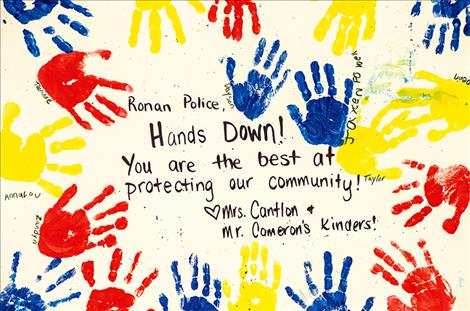 Ronan Police,
Hands Down!
You are the best at
protecting our community!
♡Mrs. Cantlon +
Mr. Cameron's Kinders!
Taylor
Annalou